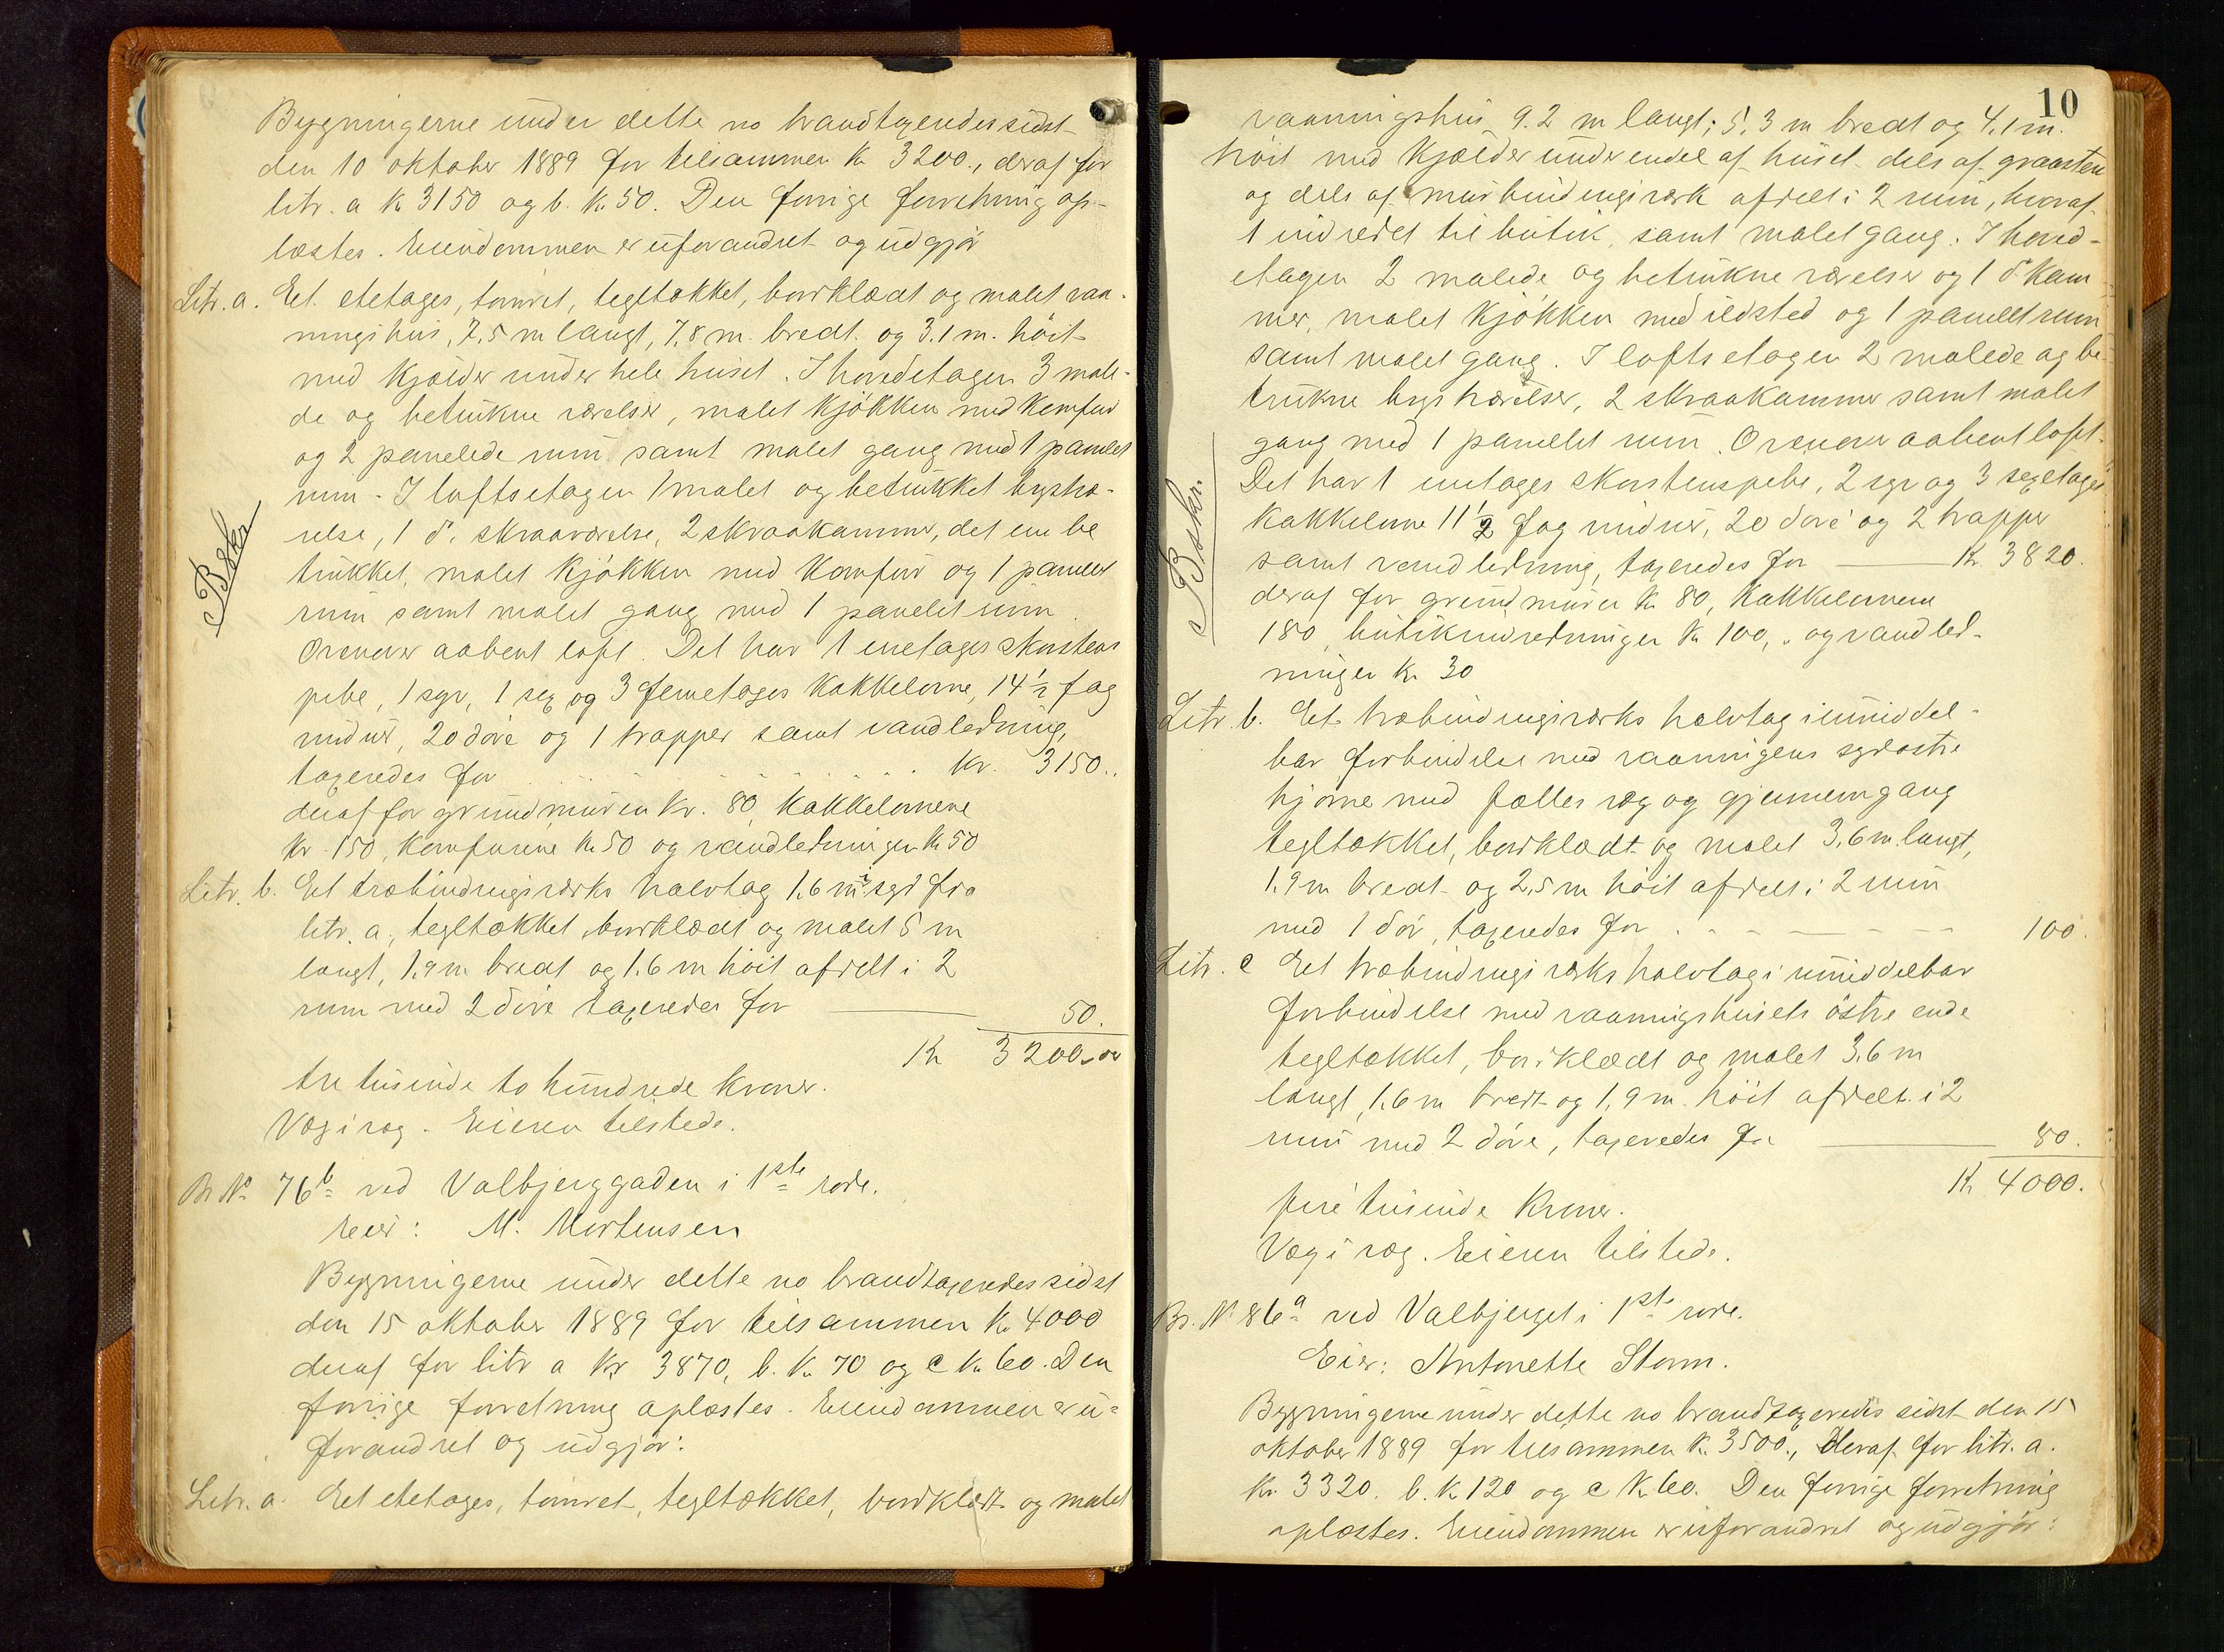 Bygningerne under dette no brandtaxeredes sidst
den 10 oktober 1889 for tilsammen Kr 3200., deraf for
litr. a Kr 3150 og b. Kr. 50. Den forrige forretning op-
læstes. Eiendommen er uforandret og udgjør
Litr. a. Et etetages, tømret, tegltækket, bordklædt og malet vaa-
ningshus, 7,5 m langt, 7,8 m. bredt. og 3.1 m. höit
med Kjælder under hele huset. I hovedetagen 3 male-
de og betrukne værelser, malet Kjøkken med Komfur
og 2 panelede rum samt malet gang med 1 panelet
rum - I loftsetagen 1 malet og betrukket kvistvæ-
relse, 1 do. skraaværelse, 2 skraakammer, det ene be
trukket, malet Kjøkken med Komfur og 1 panelet
rum samt malet gang med 1 panelet rum
Ovenover aabent loft. Det har 1 enetages skorstens
pibe, 1 syv, 1 sex og 3 femetages Kakkelovne, 14 1/2 fag
vinduer, 20 döre og 1 trapper samt vandledning,
taxeredes for . . . . . . . . Kr. 3150..
deraf for grundmuren Kr. 80, Kakkelovnene
Kr. 150, Komfurene Kr 50 og vandledningen Kr 50
Litr. b. Et træbindingsværks halvtag 1,6 m syd fra
litr. a, tegltækket, bordklædt og malet 5 m
langt, 1,9 m bredt og 1.6 m höit afdelt i 2
rum med 2 döre taxeredes for 50.
Kr 3200.00
tre tusinde to hundrede Kroner.
Væg i væg. Eieren tilstede.
Br No 76b ved Valbjerggaden i 1ste rode.
Eier: M. Mortensen
Bygningerne under dette no brandtaxeredes sidst
den 15 oktober 1889 for tilsammen Kr. 4000
deraf for litr a Kr 3870, b. Kr. 70 og c Kr. 60. Den
forrige forretning oplæstes. Eiendommen er u-
forandret og udgjør:
Litr. a. Et etetages, tømret, tegltækket, bordklædt og malet
Beskr.
10
vaaningshus 9.2 m langt; 5,3 m bredt og 4,1 m.
höit med Kjælder under endel af huset dels af graasten
og dels af murbindingsværk afdelt i 2 rum, hvoraf
1 indredet til butik, samt malet gang. I hoved-
etagen 2 malede og betrukne værelser og 1 do Kam
mer, malet Kjøkken med ildsted og 1 panelet rum
samt malet gang. I loftsetagen 2 malede og be
trukne kvistværelser, 2 skraakammer samt malet
gang med 1 panelet rum. Ovenover aabent loft.
Det har 1 enetages skorstenspibe, 2 syv og 3 sexetages
Kakkelovne 11 1/2 fag vinduer, 20 döre og 2 trapper
samt vandledning, taxeredes for Kr. 3820.
deraf for grundmuren Kr. 80, Kakkelovnene
180, butikindretningen Kr 100, og vandled-
ningen Kr. 30
Litr. b. Et træbindingsværks halvtag i umiddel-
bar forbindelse med vaaningens sydøstre
hjørne med fælles væg og gjennemgang
tegltækket, bordklædt og malet 3,6 m langt,
1.9 m bredt og 2,5 m höit afdelt i 2 rum
med 1 dör, taxeredes for 100.
Litr. c Et træbindingsværks halvtag i umiddelbar
forbindelse med vaaningshusets östre ende
tegltækket, bordklædt og malet 3,6 m
langt, 1.6 m bredt og 1,9 m. höit afdelt i 2
rum med 2 döre, taxeredes for 80.
Kr 4000.
fire tusinde Kroner.
Væg i væg. Eieren tilstede.
Br. No 86a ved Valbjerget i 1ste rode.
Eier: Antonette Storm.
Bygningerne under dette no brandtaxeredes sidst den 15
oktober 1889 for tilsammen Kr. 3500., deraf for litr. a.
Kr. 3320. b. Kr 120 og c Kr. 60. Den forrige forretning
oplæstes. Eiendommen er uforandret og udgjør:
Beskr.